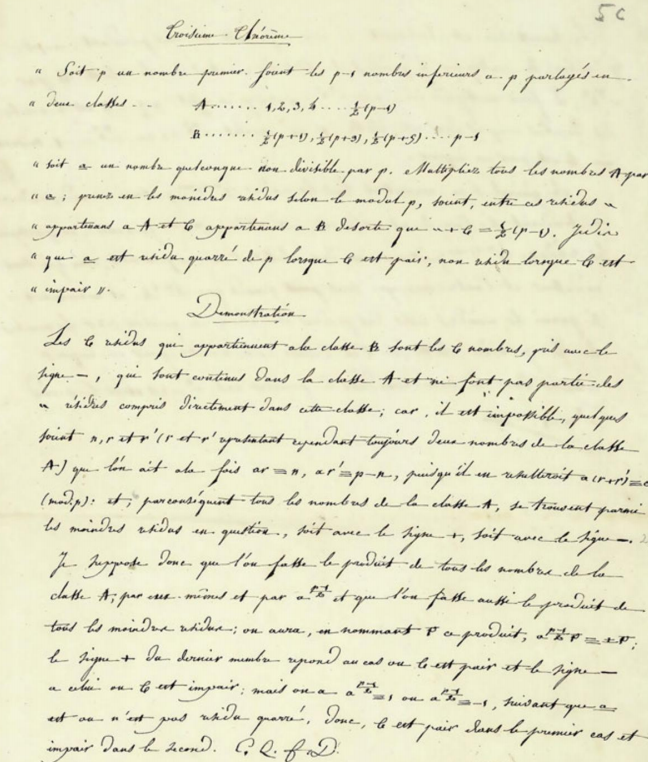 5C
Troisieme Théorème
" Soit p un nombre premier. soient les p-1 nombres inferieurs a p partagés en
" deux classes... A...... 1, 2, 3, 4.... ½(p-1)
B...... ½(p+1), ½(p+3), ½(p+5).... p-1
" soit a un nombre quelconque non divisible par p. Multipliez tous les nombres A par
" a; prenez en les moindres résidus selon le modul p, soient, entre ces residus α
" appartenans a A et 6 appartenans a B desorte que α+6 = ½(p-1). Je dis
" que a est résidu quarré de p lorsque 6 est pair, non résidu lorsque 6 est
" impair ".
Demonstration
Les 6 résidus qui appartiennent ala classe B sont les 6 nombres, pris avec le
signe -, qui sont contenus dans la classe A et ne font pas partie des
α résidus compris directement dans cette classe; car, il est impossible, quelques
soient n, r et r' (r et r' representant cependant toujours deux nombres de la classe
A) que l'on ait ala fois ar≡n, ar'≡p-n, puisqu'il en resulteroit a(r+r')≡0
(mod.p): et, parconséquent tous les nombres de la classe A, se trouvent parmi
les moindres résidus en question, soit avec le signe +, soit avec le signe -.
Je suppose donc que l'on fasse le produit de tous les nombres de la
classe A, par eux-mêmes et par a^{\frac{p-1}{2}} et que l'on fasse aussi le produit de
tous les moindres résidus; on aura, en nommant P ce produit, a^{\frac{p-1}{2}}P≡±P;
le signe + du dernier membre repond au cas ou 6 est pair et le signe -
a celui ou 6 est impair; mais on a a^{\frac{p-1}{2}}≡1 ou a^{\frac{p-1}{2}}≡-1, suivant que a
est ou n'est pas résidu quarré, donc, 6 est pair dans le premier cas et
impair dans le second. C. Q. f. D.